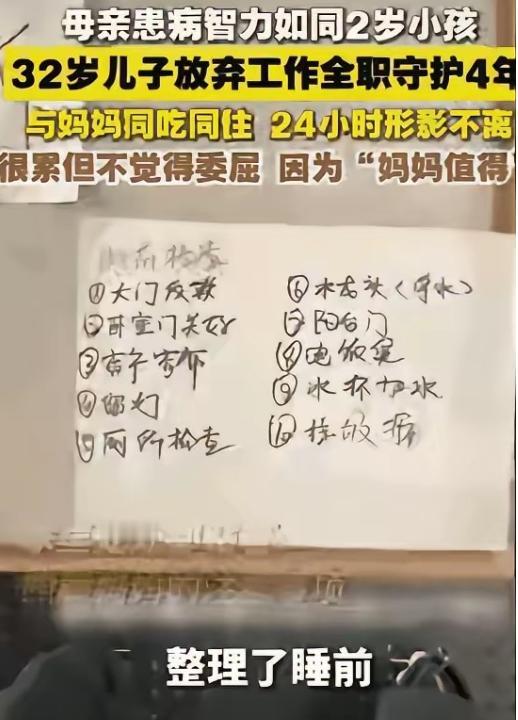 母亲患病智力如同2岁小孩
32岁儿子放弃工作全职守护4年
与妈妈同吃同住 24小时形影不离
很累但不觉得委屈 因为“妈妈值得
①大门反锁
②卧室门关好
③
④留灯
⑤厕所检查
⑥水龙头(停水)
⑦阳台门
⑧电饭煲
⑨水杯切水
⑩
整理了睡前